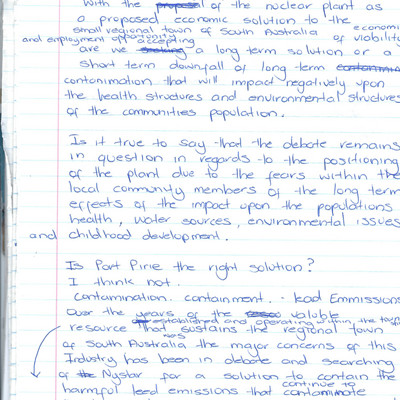 With the of the nuclear plant as
a proposed economic solution to the economic
small regional town of South Australia of viability
and employment opportunities
are we accepting a long term solution or a
short term downfall of long term
contanimation that will impact negatively upon
the health structures and environmental structures
of the communities population.
Is it true to say that the debate remains
in question in regards to the positioning
of the plant due to the fears within the
local community members of the long term
effects of the impact upon the populations
health, water sources, environmental issues
and childhood development.
Is Port Pirie the right solution?
I think not.
Contamination. containment. - lead Emmissions
Over the years of the valuble
established and operating within the town
resource that sustains the regional town
of South Australia the major concerns of this
Industry has been in debate and searching
of Nystar for a solution to contain the
harmful leed emissions that continue to
contaminate